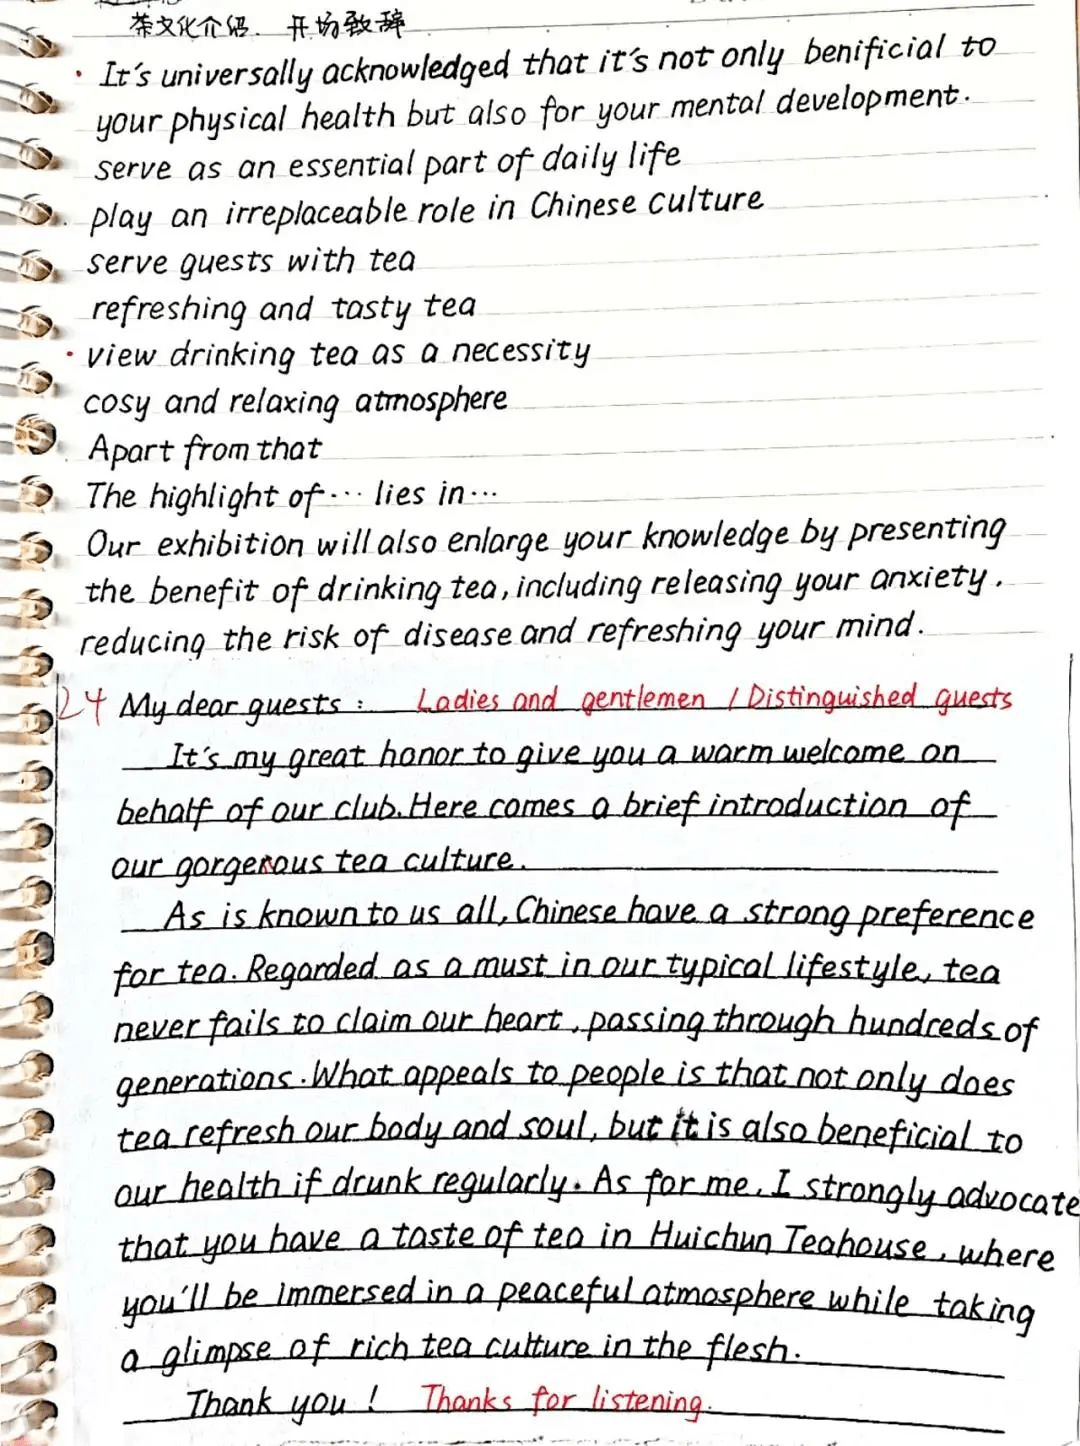 茶文化介绍. 开场致辞
· It's universally acknowledged that it's not only benificial to
your physical health but also for your mental development.
serve as an essential part of daily life
play an irreplaceable role in Chinese culture
serve guests with tea
refreshing and tasty tea
· view drinking tea as a necessity
cosy and relaxing atmosphere
Apart from that
The highlight of ··· lies in ···
Our exhibition will also enlarge your knowledge by presenting
the benefit of drinking tea, including releasing your anxiety,
reducing the risk of disease and refreshing your mind.
24 My dear guests: Ladies and gentlemen / Distinguished guests
It's my great honor to give you a warm welcome on
behalf of our club. Here comes a brief introduction of
our gorgerous tea culture.
As is known to us all, Chinese have a strong preference
for tea. Regarded as a must in our typical lifestyle, tea
never fails to claim our heart, passing through hundreds of
generations. What appeals to people is that not only does
tea refresh our body and soul, but it is also beneficial to
our health if drunk regularly. As for me, I strongly advocate
that you have a taste of tea in Huichun Teahouse, where
you'll be immersed in a peaceful atmosphere while taking
a glimpse of rich tea culture in the flesh.
Thank you! Thanks for listening.